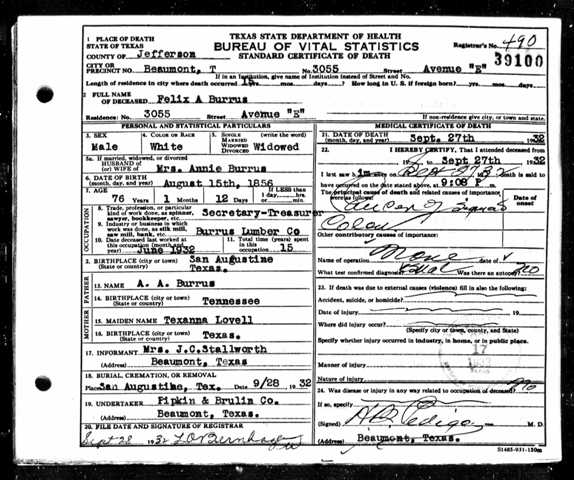 TEXAS STATE DEPARTMENT OF HEALTH
BUREAU OF VITAL STATISTICS
STANDARD CERTIFICATE OF DEATH
Registrar's No. 490
39100
1 PLACE OF DEATH
STATE OF TEXAS
COUNTY OF Jefferson
CITY OR
PRECINCT NO. Beaumont, T No. 3055 Street Avenue "E"
If in an Institution, give name of Institution instead of Street and No.
Length of residence in city where death occurred yrs. mos. days? How long in U. S. if foreign born? yrs. mos. days
2 FULL NAME
OF DECEASED Felix A Burrus
Residence: No. 3055 Street Avenue "E"
If non-residence, give city or town, and state.
PERSONAL AND STATISTICAL PARTICULARS
3. SEX
Male
4. COLOR OR RACE
White
5. SINGLE
MARRIED
WIDOWED
DIVORCED
(write the word)
Widowed
5a. If married, widowed, or divorced
HUSBAND of
(or) WIFE of Mrs. Annie Burrus
6. DATE OF BIRTH
(month, day, and year) August 15th, 1856
7. AGE 76 Years 1 Months 12 Days
If LESS than
1 day, hrs.
or min.
OCCUPATION
8. Trade, profession, or particular
kind of work done, as spinner,
sawyer, bookkeeper, etc. Secretary-Treasurer
9. Industry or business in which
work was done, as silk mill,
saw mill, bank, etc. Burrus Lumber Co
10. Date deceased last worked at
this occupation (month and
year) June 1932
11. Total time (years)
spent in this
occupation 15
12. BIRTHPLACE (city or town) San Augustine
(State or country) Texas.
FATHER
13. NAME A. A. Burrus
14. BIRTHPLACE (city or town)
(State or country) Tennessee
MOTHER
15. MAIDEN NAME Texanna Lovell
16. BIRTHPLACE (city or town)
(State or country) Texas.
17. INFORMANT Mrs. J.C.Stallworth
(Address) Beaumont, Texas
18. BURIAL, CREMATION, OR REMOVAL
Place San Augustine, Tex. Date 9/28 1932
19. UNDERTAKER Pipkin & Brulin Co.
(Address) Beaumont, Texas.
20. FILE DATE AND SIGNATURE OF REGISTRAR
Sept 28 1932
MEDICAL CERTIFICATE OF DEATH
21. DATE OF DEATH
(month, day, and year) Sept. 27th 1932
22. I HEREBY CERTIFY, That I attended deceased
from 19 to Sept 27th 1932
I last saw h alive on Sept 27 1932 death is said to
have occurred on the date stated above, at 9:08 P m.
The principal cause of death and related causes of importance
were as follows:
Date of
onset
Cancer of
Colon
Other contributory causes of importance:
Name of operation None Date of
What test confirmed diagnosis? Was there an autopsy? no
23. If death was due to external causes (violence) fill in also the following:
Accident, suicide, or homicide?
Date of injury 19
Where did injury occur?
(Specify city or town, county, and State)
Specify whether injury occurred in industry, in home, or in public place.
17
Manner of injury
Nature of injury
24. Was disease or injury in any way related to occupation of deceased? no
If so, specify
(Signed) M. D.
(Address) Beaumont, Texas.